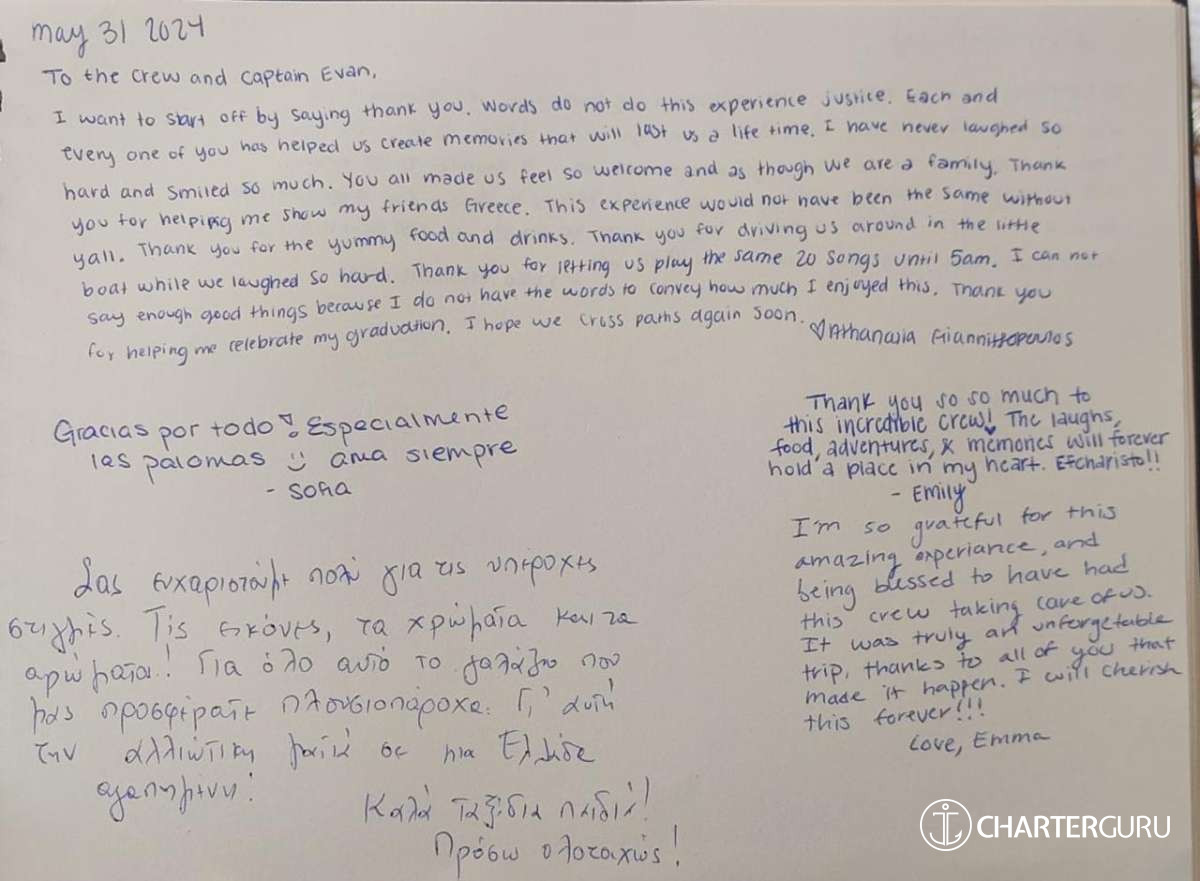 may 31 2024
To the crew and captain Evan,
I want to start off by saying thank you. Words do not do this experience justice. Each and
every one of you has helped us create memories that will last us a life time. I have never laughed so
hard and smiled so much. You all made us feel so welcome and as though we are a family. Thank
you for helping me show my friends Greece. This experience would not have been the same without
yall. Thank you for the yummy food and drinks. Thank you for driving us around in the little
boat while we laughed so hard. Thank you for letting us play the same 20 songs until 5am. I can not
say enough good things because I do not have the words to convey how much I enjoyed this. Thank you
for helping me celebrate my graduation. I hope we cross paths again soon.
♡Athanasia
Gracias por todo! Especialmente
las palomas :) ama siempre
- Sofia
Thank you so so much to
this incredible crew! The laughs,
food, adventures, & memories will forever
hold a place in my heart. Efcharisto!!
- Emily
I'm so grateful for this
amazing experiance, and
being blessed to have had
this crew taking care of us.
It was truly an unforgetable
trip, thanks to all of you that
made it happen. I will cherish
this forever!!!
Love, Emma
Σας ευχαριστούμε πολύ για τις υπέροχες
στιγμές. Τίς εικόνες, τα χρώματα και τα
αρώματα! Για όλο αυτό το γαλάζιο που
μας προσφέρατε πλουσιοπάροχα. Γι' αυτή
την αλλιώτικη ματιά σε μια Ελλάδα
αγαπημένη!
Καλά ταξίδια παιδιά!
Πρόσω ολοταχώς!
CHARTERGURU